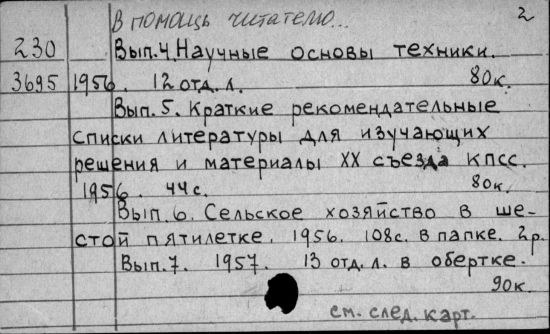 В помощь читателю... 2
230 Вып.4. Научные основы техники.
3695 1956. 12 отд. л. 80к.
Вып. 5. Краткие рекомендательные
списки литературы для изучающих
решения и материалы XX съезда КПСС.
1956. 44с. 80к.
Вып. 6. Сельское хозяйство в ше-
стой пятилетке. 1956. 108с. в папке. 2р.
Вып. 7. 1957. 13 отд. л. в обертке.
90к.
см. след. карт.